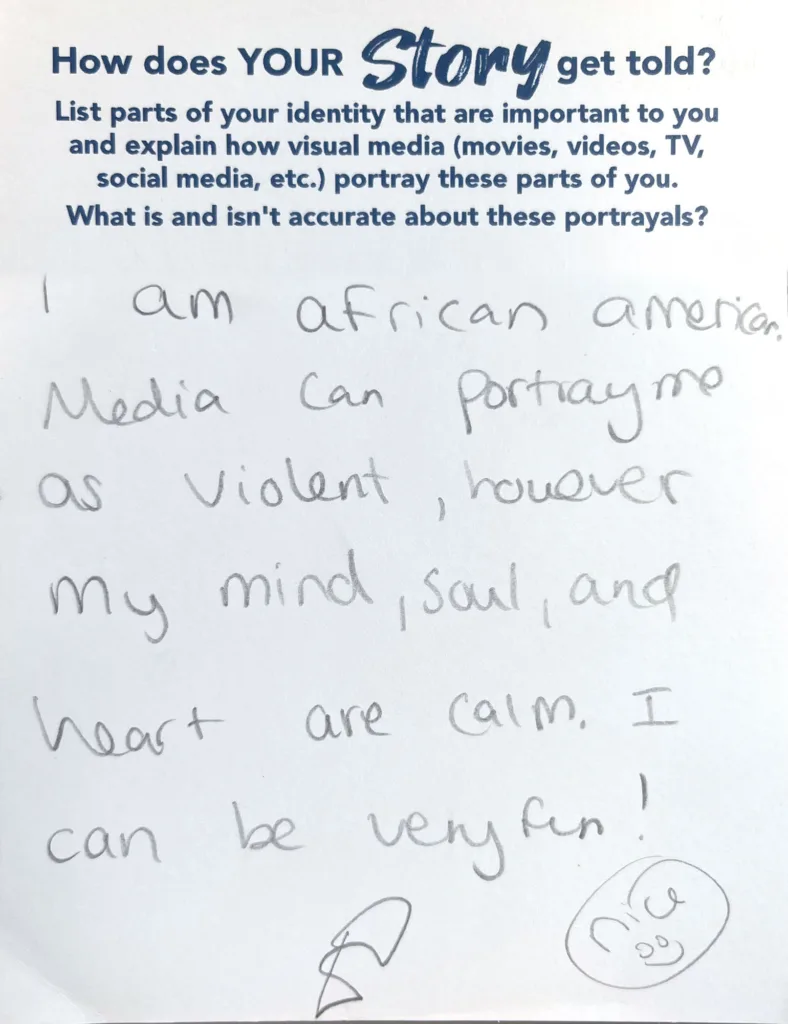 How does YOUR Story get told?
List parts of your identity that are important to you
and explain how visual media (movies, videos, TV,
social media, etc.) portray these parts of you.
What is and isn't accurate about these portrayals?
I am african american.
Media can portray me
as violent, however
my mind, soul, and
heart are calm. I
can be very fun!